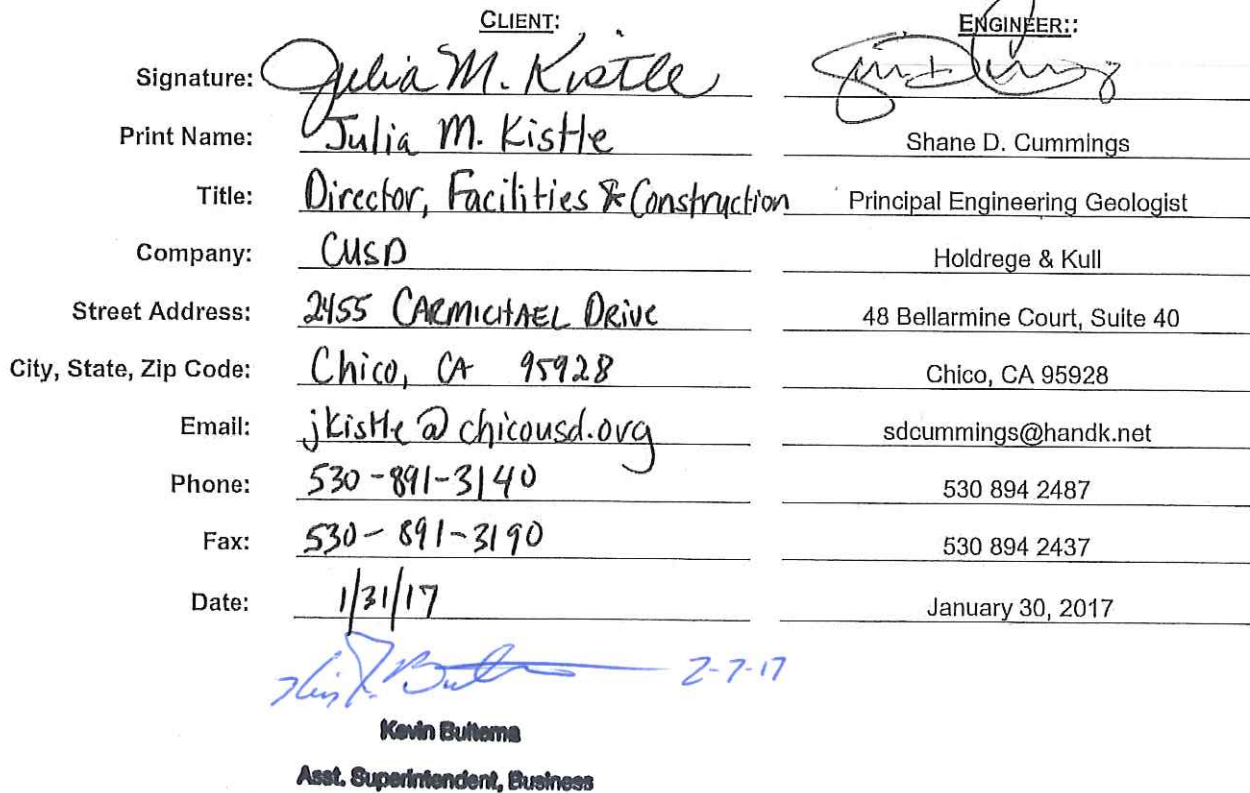 CLIENT: ENGINEER::
Signature: Julia M. Kistle
Print Name: Julia M. Kistle Shane D. Cummings
Title: Director, Facilities & Construction Principal Engineering Geologist
Company: CUSD Holdrege & Kull
Street Address: 2455 CARMICHAEL DRIVE 48 Bellarmine Court, Suite 40
City, State, Zip Code: Chico, CA 95928 Chico, CA 95928
Email: jkistle@chicousd.org sdcummings@handk.net
Phone: 530-891-3140 530 894 2487
Fax: 530-891-3190 530 894 2437
Date: 1/31/17 January 30, 2017
2-7-17
Kevin Bultema
Asst. Superintendent, Business